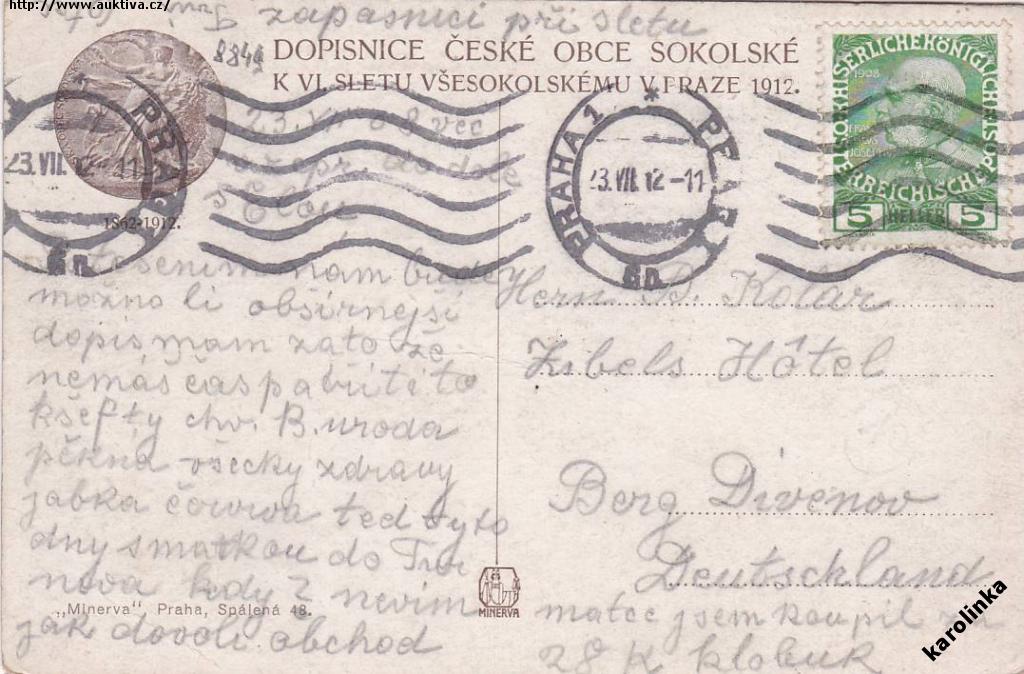 http://www.auktiva.cz/
zapasníci při sletu
8844
DOPISNICE ČESKÉ OBCE SOKOLSKÉ
K VI. SLETU VŠESOKOLSKÉMU V PRAZE 1912.
1862-1912.
PRAHA 1 * PRAG 1
23.VII.12-11
6n.
PRAHA 1 * PRAG 1
23.VII.12-11
6n.
KAISERLICHE KÖNIGLICHE ÖSTERREICHISCHE POST
1908
5 HELLER 5
23
těšením nám bude
možno li obšírnější
dopis mám za to že
nemáš čas
kšefty chv. B. uroda
pěkná všecky zdravy
jabka teď tyto
dny s matkou do Tur
nova kdy nevím
jak dovolí obchod
Herrn B. Kolár
Zibels Hôtel
Berg Divenov
Deutschland
matce jsem koupil za
28 K klobuk
„Minerva", Praha, Spálená 48.
MINERVA
karolinka